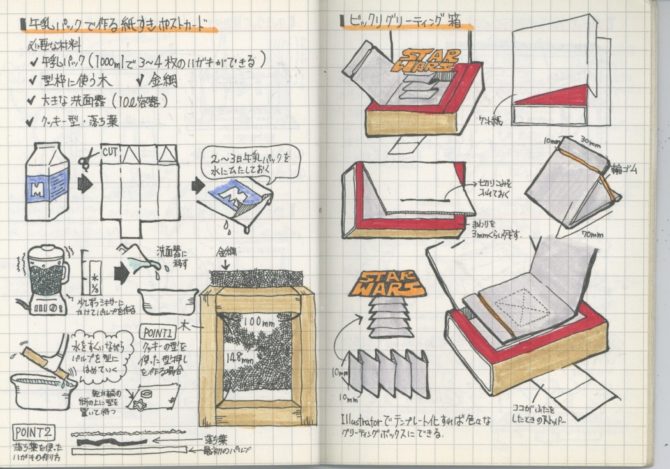 牛乳パックで作る紙すきポストカード
必要な材料
✓ 牛乳パック(1000mlで3〜4枚のハガキができる)
✓ 型枠に使う木 ✓ 金網
✓ 大きな洗面器(10ℓ容器)
✓ クッキー型・落ち葉
CUT
M
2〜3日牛乳パックを
水にひたしておく
M
洗面器に
移す
金網
1/3
少しずつミキサーに
かけてパルプを作る
木
100mm
148mm
水をすくいながら
パルプを型に
はめていく
POINT1
クッキーの型を
使った型押し
を作る場合
POINT2
落ち葉を使った
ハガキの作り方
落ち葉
最初のパルプ
ビックリグリーティング箱
STAR
WARS
ケント紙
10mm
30mm
輪ゴム
70mm
まわりを
STAR
WARS
10mm
10mm
Illustratorでテンプレート化すれば色々な
グリーティングボックスにできる。
ココがふたを
したときのストッパー